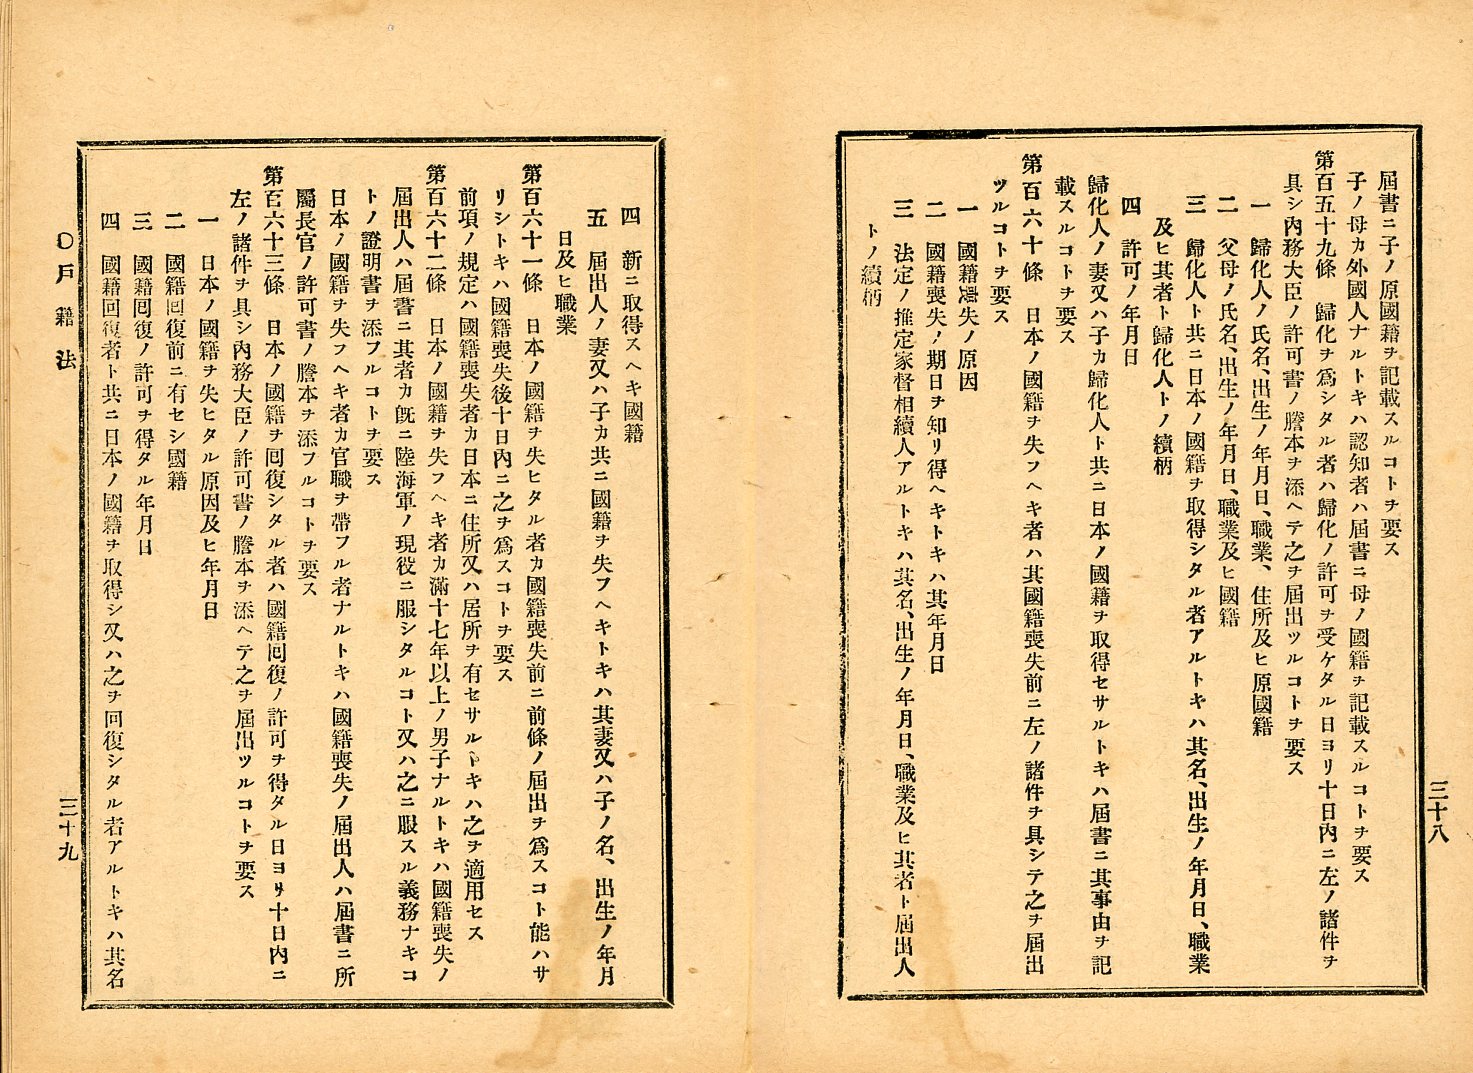 屆書ニ子ノ原國籍ヲ記載スルコトヲ要ス
子ノ母カ外國人ナルトキハ認知者ハ屆書ニ母ノ國籍ヲ記載スルコトヲ要ス
第百五十九條 歸化ヲ爲シタル者ハ歸化ノ許可ヲ受ケタル日ヨリ十日內ニ左ノ諸件ヲ
具シ內務大臣ノ許可書ノ謄本ヲ添ヘテ之ヲ屆出ツルコトヲ要ス
一 歸化人ノ氏名、出生ノ年月日、職業、住所及ヒ原國籍
二 父母ノ氏名、出生ノ年月日、職業及ヒ國籍
三 歸化人ト共ニ日本ノ國籍ヲ取得シタル者アルトキハ其名、出生ノ年月日、職業
及ヒ其者ト歸化人トノ續柄
四 許可ノ年月日
歸化人ノ妻又ハ子カ歸化人ト共ニ日本ノ國籍ヲ取得セサルトキハ屆書ニ其事由ヲ記
載スルコトヲ要ス
第百六十條 日本ノ國籍ヲ失フヘキ者ハ其國籍喪失前ニ左ノ諸件ヲ具シテ之ヲ屆出
ツルコトヲ要ス
一 國籍喪失ノ原因
二 國籍喪失ノ期日ヲ知リ得ヘキトキハ其年月日
三 法定ノ推定家督相續人アルトキハ其名、出生ノ年月日、職業及ヒ其者ト屆出人
トノ續柄
三十八
四 新ニ取得スヘキ國籍
五 屆出人ノ妻又ハ子カ共ニ國籍ヲ失フヘキトキハ其妻又ハ子ノ名、出生ノ年月
日及ヒ職業
第百六十一條 日本ノ國籍ヲ失ヒタル者カ國籍喪失前ニ前條ノ屆出ヲ爲スコト能ハサ
リシトキハ國籍喪失後十日內ニ之ヲ爲スコトヲ要ス
前項ノ規定ハ國籍喪失者カ日本ニ住所又ハ居所ヲ有セサルトキハ之ヲ適用セス
第百六十二條 日本ノ國籍ヲ失フヘキ者カ滿十七年以上ノ男子ナルトキハ國籍喪失ノ
屆出人ハ屆書ニ其者カ旣ニ陸海軍ノ現役ニ服シタルコト又ハ之ニ服スル義務ナキコ
トノ證明書ヲ添フルコトヲ要ス
日本ノ國籍ヲ失フヘキ者カ官職ヲ帶フル者ナルトキハ國籍喪失ノ屆出人ハ屆書ニ所
屬長官ノ許可書ノ謄本ヲ添フルコトヲ要ス
第百六十三條 日本ノ國籍ヲ回復シタル者ハ國籍回復ノ許可ヲ得タル日ヨリ十日內ニ
左ノ諸件ヲ具シ內務大臣ノ許可書ノ謄本ヲ添ヘテ之ヲ屆出ツルコトヲ要ス
一 日本ノ國籍ヲ失ヒタル原因及ヒ年月日
二 國籍回復前ニ有セシ國籍
三 國籍回復ノ許可ヲ得タル年月日
四 國籍回復者ト共ニ日本ノ國籍ヲ取得シ又ハ之ヲ回復シタル者アルトキハ其名
〇戶籍法
三十九